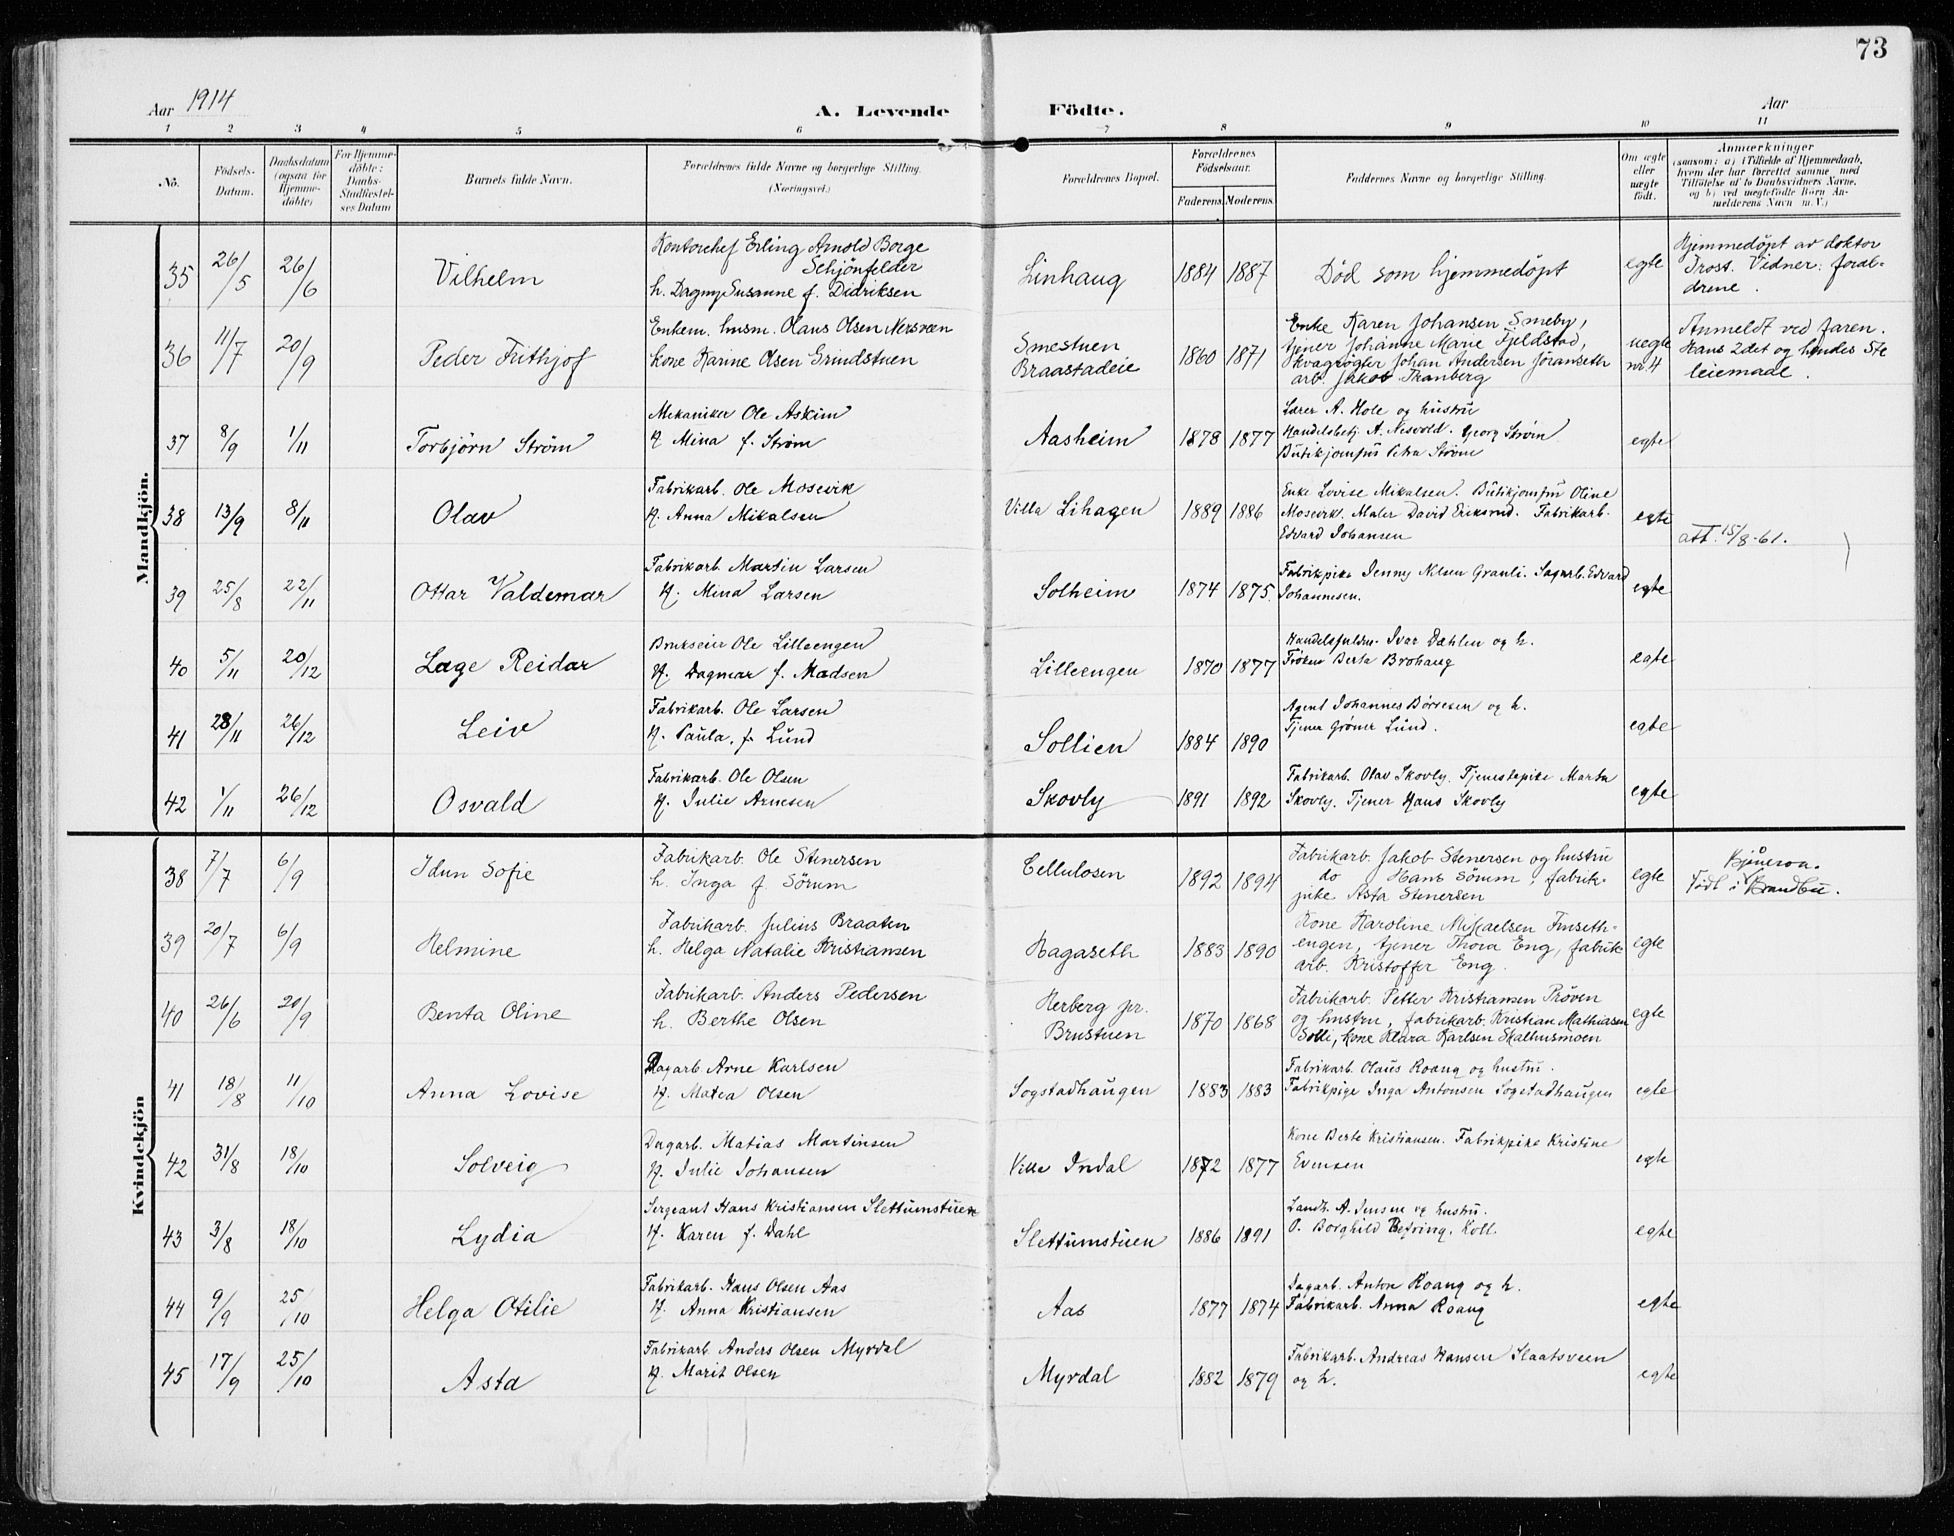 73
Aar 1914
A. Levende Födte.
Aar
1 2 3 4 5 6 7 8 9 10 11
No.
Födsels-Datum.
Daabsdatum (ogsaa for Hjemme-döbte)
For Hjemme-döbte: Daabs-Stadfæstel-ses Datum
Barnets fulde Navn.
Forældrenes fulde Navne og borgerlige Stilling. (Næringsvei.)
Forældrenes Bopæl.
Forældrenes Födselsaar.
Faderens. Moderens.
Faddernes Navne og borgerlige Stilling.
Om ægte eller uægte født.
Anmærkninger
(saasom: a) i Tilfælde af Hjemmedaab, hvem der har forrettet samme, med Tilföielse af to Daabsvidners Navne, og b) ved uægtefödte Börn An-melderens Navn m. V.)
Mandkjön.
35 26/5 26/6 Vilhelm
Kontorchef Erling Arnold Borge
Schjönfelder
h. Dagny Susanne f. Didriksen
Linhaug 1884 1887 Död som hjemmedöpt egte
Hjemmedöpt av doktor
Trost. Vidner: foræl-
drene.
36 11/7 20/9 Peder Frithjof
Enkem. husm. Olaus Olsen Nersveen
kone Karine Olsen Grindstuen
Smestuen
Braastadeie
1860 1871
Enke Karen Johansen Smeby,
tjener Johanne Marie Fjeldstad,
Kvægrögter Johan Andersen Jöranseth
arb. Jakob Thanberg
uegte
nr. 4
Anmeldt ved faren.
Hans 2det og hendes 5te
leiemaal.
37 8/9 1/11 Torbjörn Ström
Mekaniker Ole Askim
H. Mina f. Ström
Aasheim 1878 1877
Lærer A. Hole og hustru
Handelsbetj. A. Nesvold. Georg Ström
Butikjomfru Petra Ström
egte
38 13/9 8/11 Olav
Fabrikarb. Ole Mosevik
H. Anna Mikalsen
Villa Lihagen 1889 1886
Enke Lovise Mikalsen. Butikjomfru Oline
Mosevik. Maler David Eriksrud. Fabrikarb.
Edvard Johansen
egte
att. 15/8-61.
39 25/8 22/11 Ottar Valdemar
Fabrikarb Martin Larsen
H. Mina Larsen
Solheim 1874 1875.
Fabrikpike Jenny Nilsen Granli. Sagarb. Edvard
Johannesen.
egte
40 5/11 20/12 Lage Reidar
Brukseier Ole Lilleengen
H. Dagmar f. Madsen
Lilleengen 1870 1877
Handelsfuldm. Ivar Dæhlen og h.
Fröken Berta Brohaug
egte
41 28/11 26/12 Leiv
Fabrikarb. Ole Larsen
H. Paula. f. Lund
Sollien 1884 1890
Agent Johannes Börresen og h.
Tjener Gröner Lund.
egte
42 1/11 26/12 Osvald
Fabrikarb. Ole Olsen
H. Julie Arnesen
Skovly 1891 1892
Fabrikarb. Olav Skovly. Tjenestepike Marta
Skovly. Tjener Hans Skovly
egte
Kvindekjön
38 7/7 6/9 Idun Sofie
Fabrikarb. Ole Stenersen
h. Inga f. Sörum
Cellulosen 1892 1894
Fabrikarb. Jakob Stenersen og hustru
do Hans Sörum, fabrik-
pike Asta Stenersen
egte
Bjöneroa.
Född i Brandbu.
39 20/7 6/9 Helmine
Fabrikarb. Julius Braaten
h. Helga Natalie Kristiansen
Hagaseth 1883 1890
Kone Karoline Mikaelsen Finseth-
engen, tjener Thora Eng, fabrik
arb. Kristoffer Eng.
egte
40 26/6 20/9 Benta Oline
Fabrikarb. Anders Pedersen
h. Berthe Olsen
Herberg pr.
Brustuen
1870 1868
Fabrikarb. Petter Kristiansen Pröven
og hustru, fabrikarb. Kristian Mathiasen
Solli, kone Klara Karlsen Skalhusmoen
egte
41 18/8 11/10 Anna Lovise
Dagarb Arne Karlsen
H. Matea Olsen
Sogstadhaugen 1883 1883
Fabrikarb. Olaus Roang og hustru.
Fabrikpige Inga Antonsen Sogstadhaugen
egte
42 31/8 18/10 Solveig
Dagarb. Matias Martinsen
H. Julie Johansen
Villa Indal 1872 1877
Kone Berte Kristiansen. Fabrikpike Kristine
Evensen
egte
43 3/8 18/10 Lydia
Sergeant Hans Kristiansen Slettumstuen
H. Karen f. Dahl
Slettumstuen 1886 1891
Landh. A. Jensen og hustru.
O. Borghild Refring, Koll.
egte
44 9/9 25/10 Helga Otilie
Fabrikarb. Hans Olsen Aas
H. Anna Kristiansen
Aas 1877 1874
Dagarb. Anton Roang og h.
Fabrikarb. Anna Roang
egte
45 17/9 25/10 Asta
Fabrikarb. Anders Olsen Myrdal
H. Marit Olsen
Myrdal 1882 1879
Fabrikarb. Andreas Hansen Slaatsveen
og h.
egte